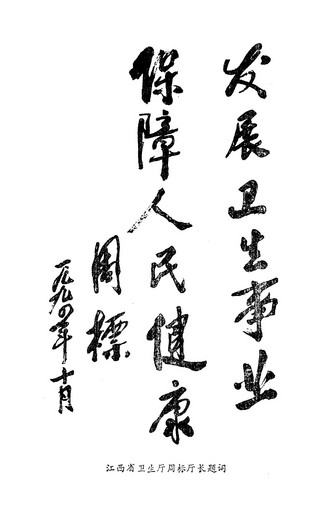 发展卫生事业
保障人民健康
周標
一九九四年十月
江西省卫生厅周标厅长题词